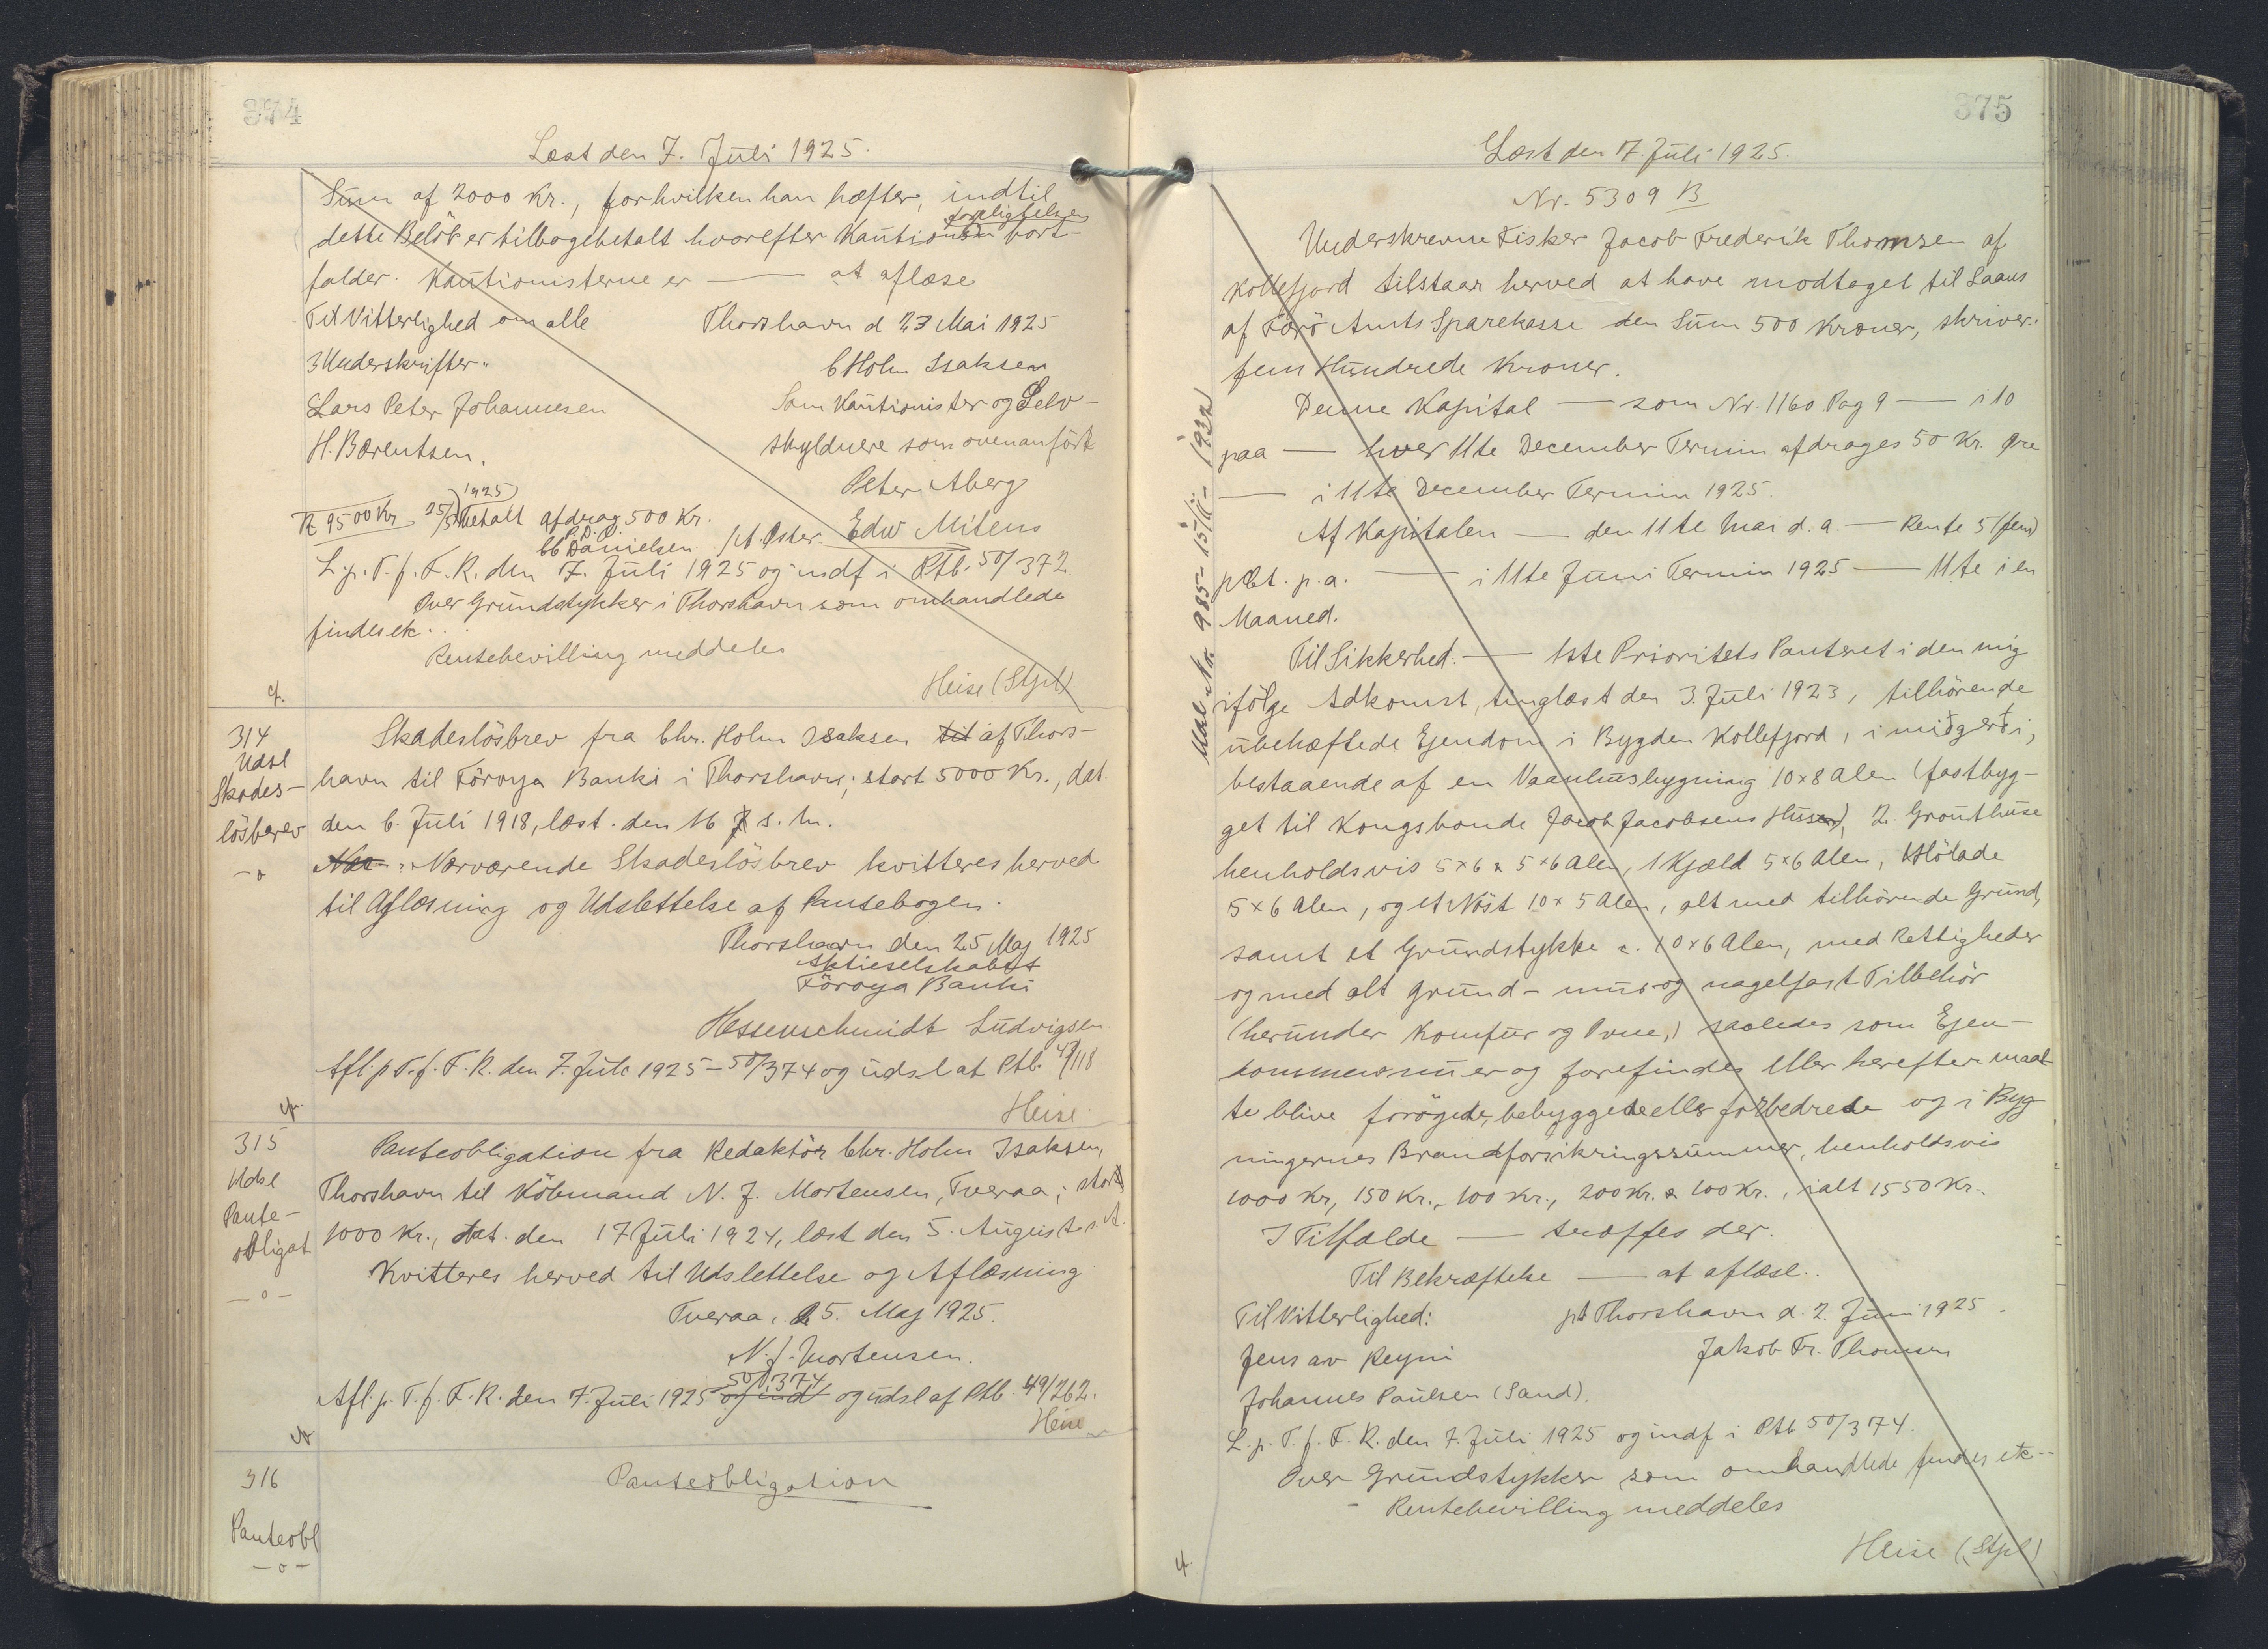 374
Læst den 7. Juli 1925.
Sum af 2000 Kr., for hvilken han hæfter, indtil
forpligtelsen
dette Beløb er tilbagebetalt hvorefter Kautionen bort-
falder. Kautionisterne er — at aflæse
Til Vitterlighed om alle Thorshavn d 23 Mai 1925
3 Underskrifter.. C Holm Isaksen
Lars Peter Johannesen Som Kautionister og Selv-
H. Bærentsen. skyldnere som ovenanført
Peter Aberg
R 9500 Kr 25/5 1925 betalt afdrag 500 Kr.
Edw Mitens
P.D.O.
CC Danielsen /A. Øster.
L.p.T.f.F.R. den 7. Juli 1925 og indf i Ptb. 50/372
Over Grundstykker i Thorshavn som omhandlede
findes etc..
Rentebevilling meddeles
Heise (Stpl)
cf.
314
Udsl
Skades-
løsbrev
-o
Skadesløsbrev fra Chr. Holm Isaksen til af Thors-
havn til Föroya Banki i Thorshavn, stort 5000 Kr., dat.
den 6. Juli 1918, læst. den 16 J s. M.
Nær Nærværende Skadesløsbrev kvitteres herved
til Aflæsning og Udslettelse af Pantebogen.
Thorshavn den 25 Maj 1925
Aktieselskabet
Föroya Banki
Hessenschmidt Ludvigsen
Afl. p T.f.F.R. den 7. Juli 1925 - 50/374 og udsl at Ptb. 47/118
Heise
cf.
315
Udsl
Pante-
obligat
-o-
Panteobligation fra Redaktör Chr. Holm Isaksen,
Thorshavn til Köbmand N. J. Mortensen, Tveraa; stor
1000 Kr., dat. den 17 Juli 1924, læst den 5. August s. A.
Kvitteres herved til Udslettelse og Aflæsning
Tveraa, 25. Maj 1925.
N. J. Mortensen.
50/374
Afl. p. T. f. F. R. den 7. Juli 1925 og indf og udsl af Ptb. 49/262.
Heise
cf
316
Panteobl
-o-
Panteobligation
375
Læst den 7. Juli 1925.
Nr. 5309 B
Underskrevne Fisker Jacob Frederik Thomsen af
Kollefjord tilstaar herved at have modtaget til Laans
af Færö Amts Sparekasse den Sum 500 Kroner, skriver
fem Hundrede Kroner.
Denne Kapital — som Nr. 1160 Pag 9 — i 10
paa — hver 11te December Termin afdrages 50 Kr. Øre
— i 11te December Termin 1925.
Af Kapitalen — den 11te Mai d. a. — Rente 5 (fem)
pCt. p. a. — i 11te Juni Termin 1925 — 11te i en
Maaned.
Til Sikkerhed. — 1ste Prioritets Panteret i den mig
ifölge Adkomst, tinglæst den 3. Juli 1923, tilhörende
ubehæftede Ejendom i Bygden Kollefjord, i miðgerði,
bestaaende af en Vaanhusbygning 10 x 8 Alen (fastbyg-
get til Kongsbonde Jacob Jacobsens Huse), 2. Grouthuse
henholdsvis 5 x 6 & 5 x 6 Alen, 1 Kjæld 5 x 6 Alen, 1 Hölade
5 x 6 Alen, og et Nöst 10 x 5 Alen, alt med tilhörende Grund,
samt et Grundstykke c. 10 x 6 Alen, med Rettigheder
og med alt grund- mur- og nagelfast Tilbehör
(herunder Komfur og Ovne,) saaledes som Ejen-
dommen nu er og forefindes eller herefter maat
te blive forögede, bebyggede eller forbedrede og i Byg
ningernes Brandforsikringssummer, henholdsvis
1000 Kr, 150 Kr., 100 Kr., 200 Kr. & 100 Kr., ialt 1550 Kr.
I Tilfælde — træffes der.
Til Bekræftelse — at aflæse..
Til Vitterlighed: pt Thorshavn d. 2. Juni 1925.
Jens av Reyni Jakob Fr. Thomsen
Johannes Paulsen (Sand).
L. p. T. f. F. R. den 7. Juli 1925 og indf i Ptb 50/374.
Over Grundstykker som omhandlede findes etc--
- Rentebevilling meddeles
Heise (Stpl)
cf.
Udsl. Nr. 985 - 15/11 - 1932